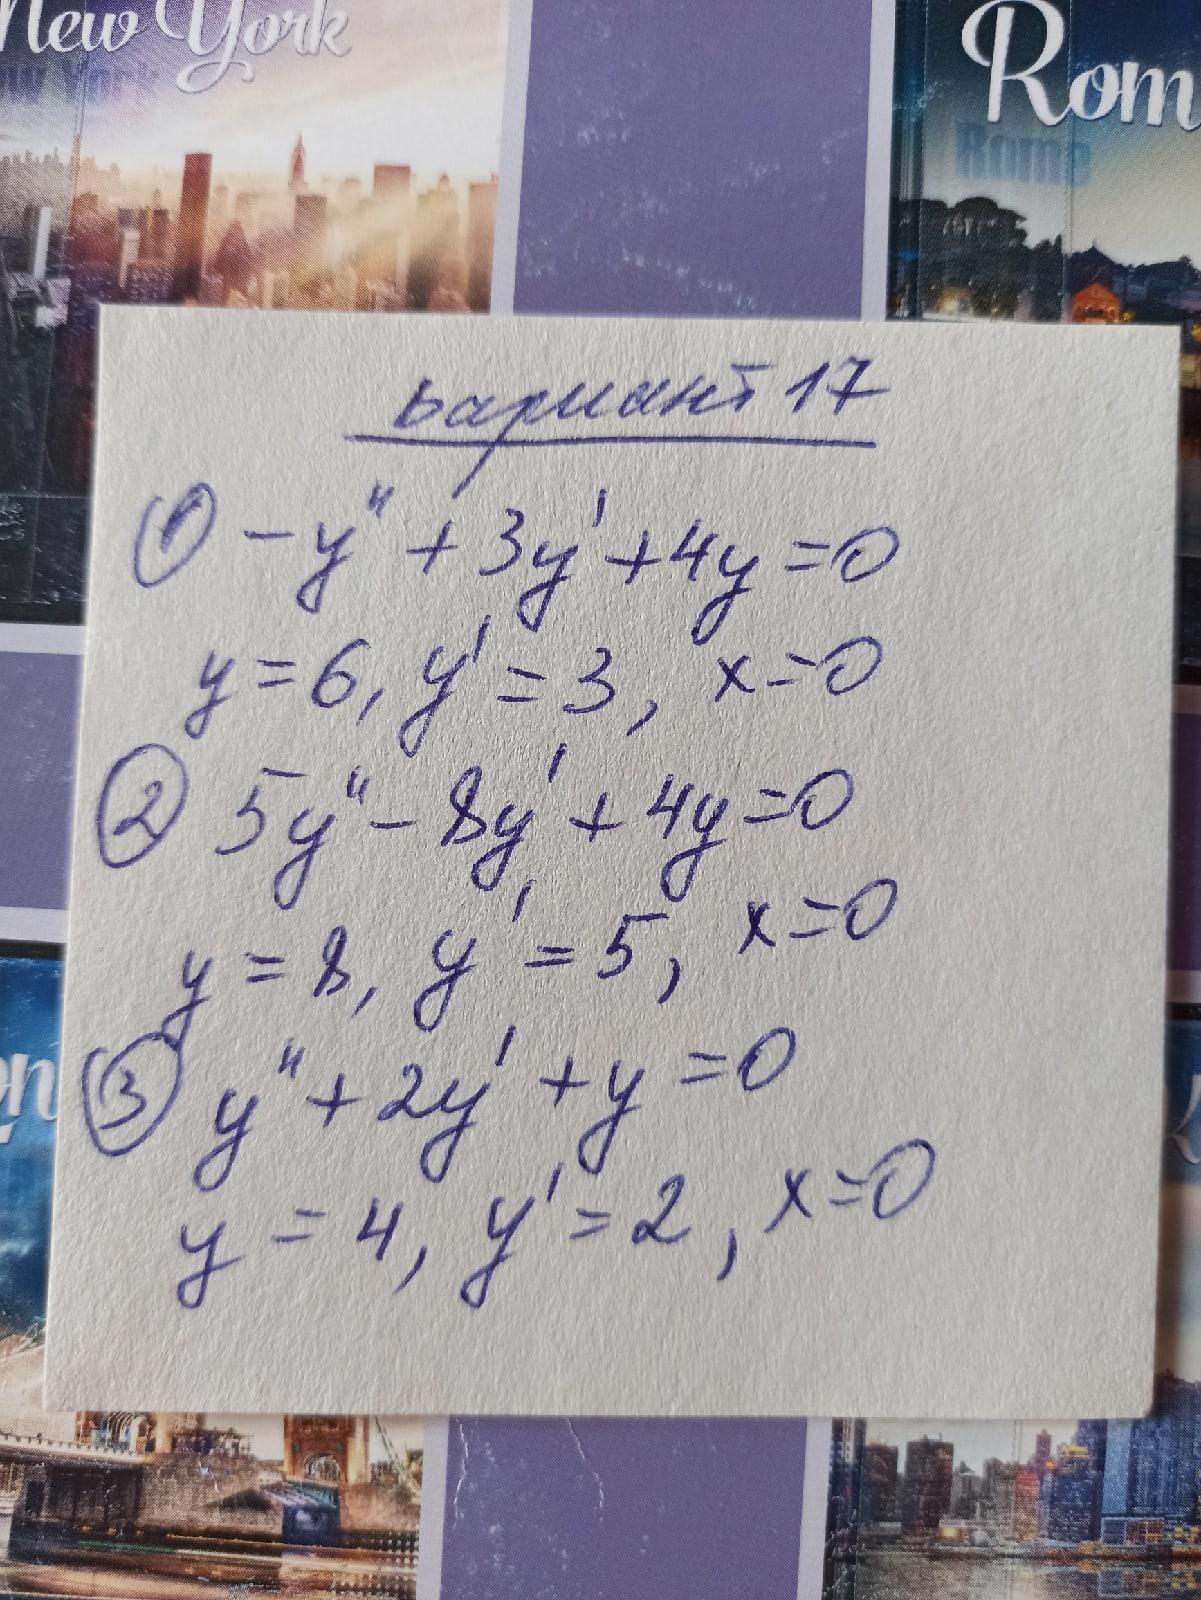 New York
Rom
вариант 17
① -y" + 3y' + 4y = 0
y = 6, y' = 3, x = 0
② 5y" - 8y' + 4y = 0
y = 8, y' = 5, x = 0
③ y" + 2y' + y = 0
y = 4, y' = 2, x = 0